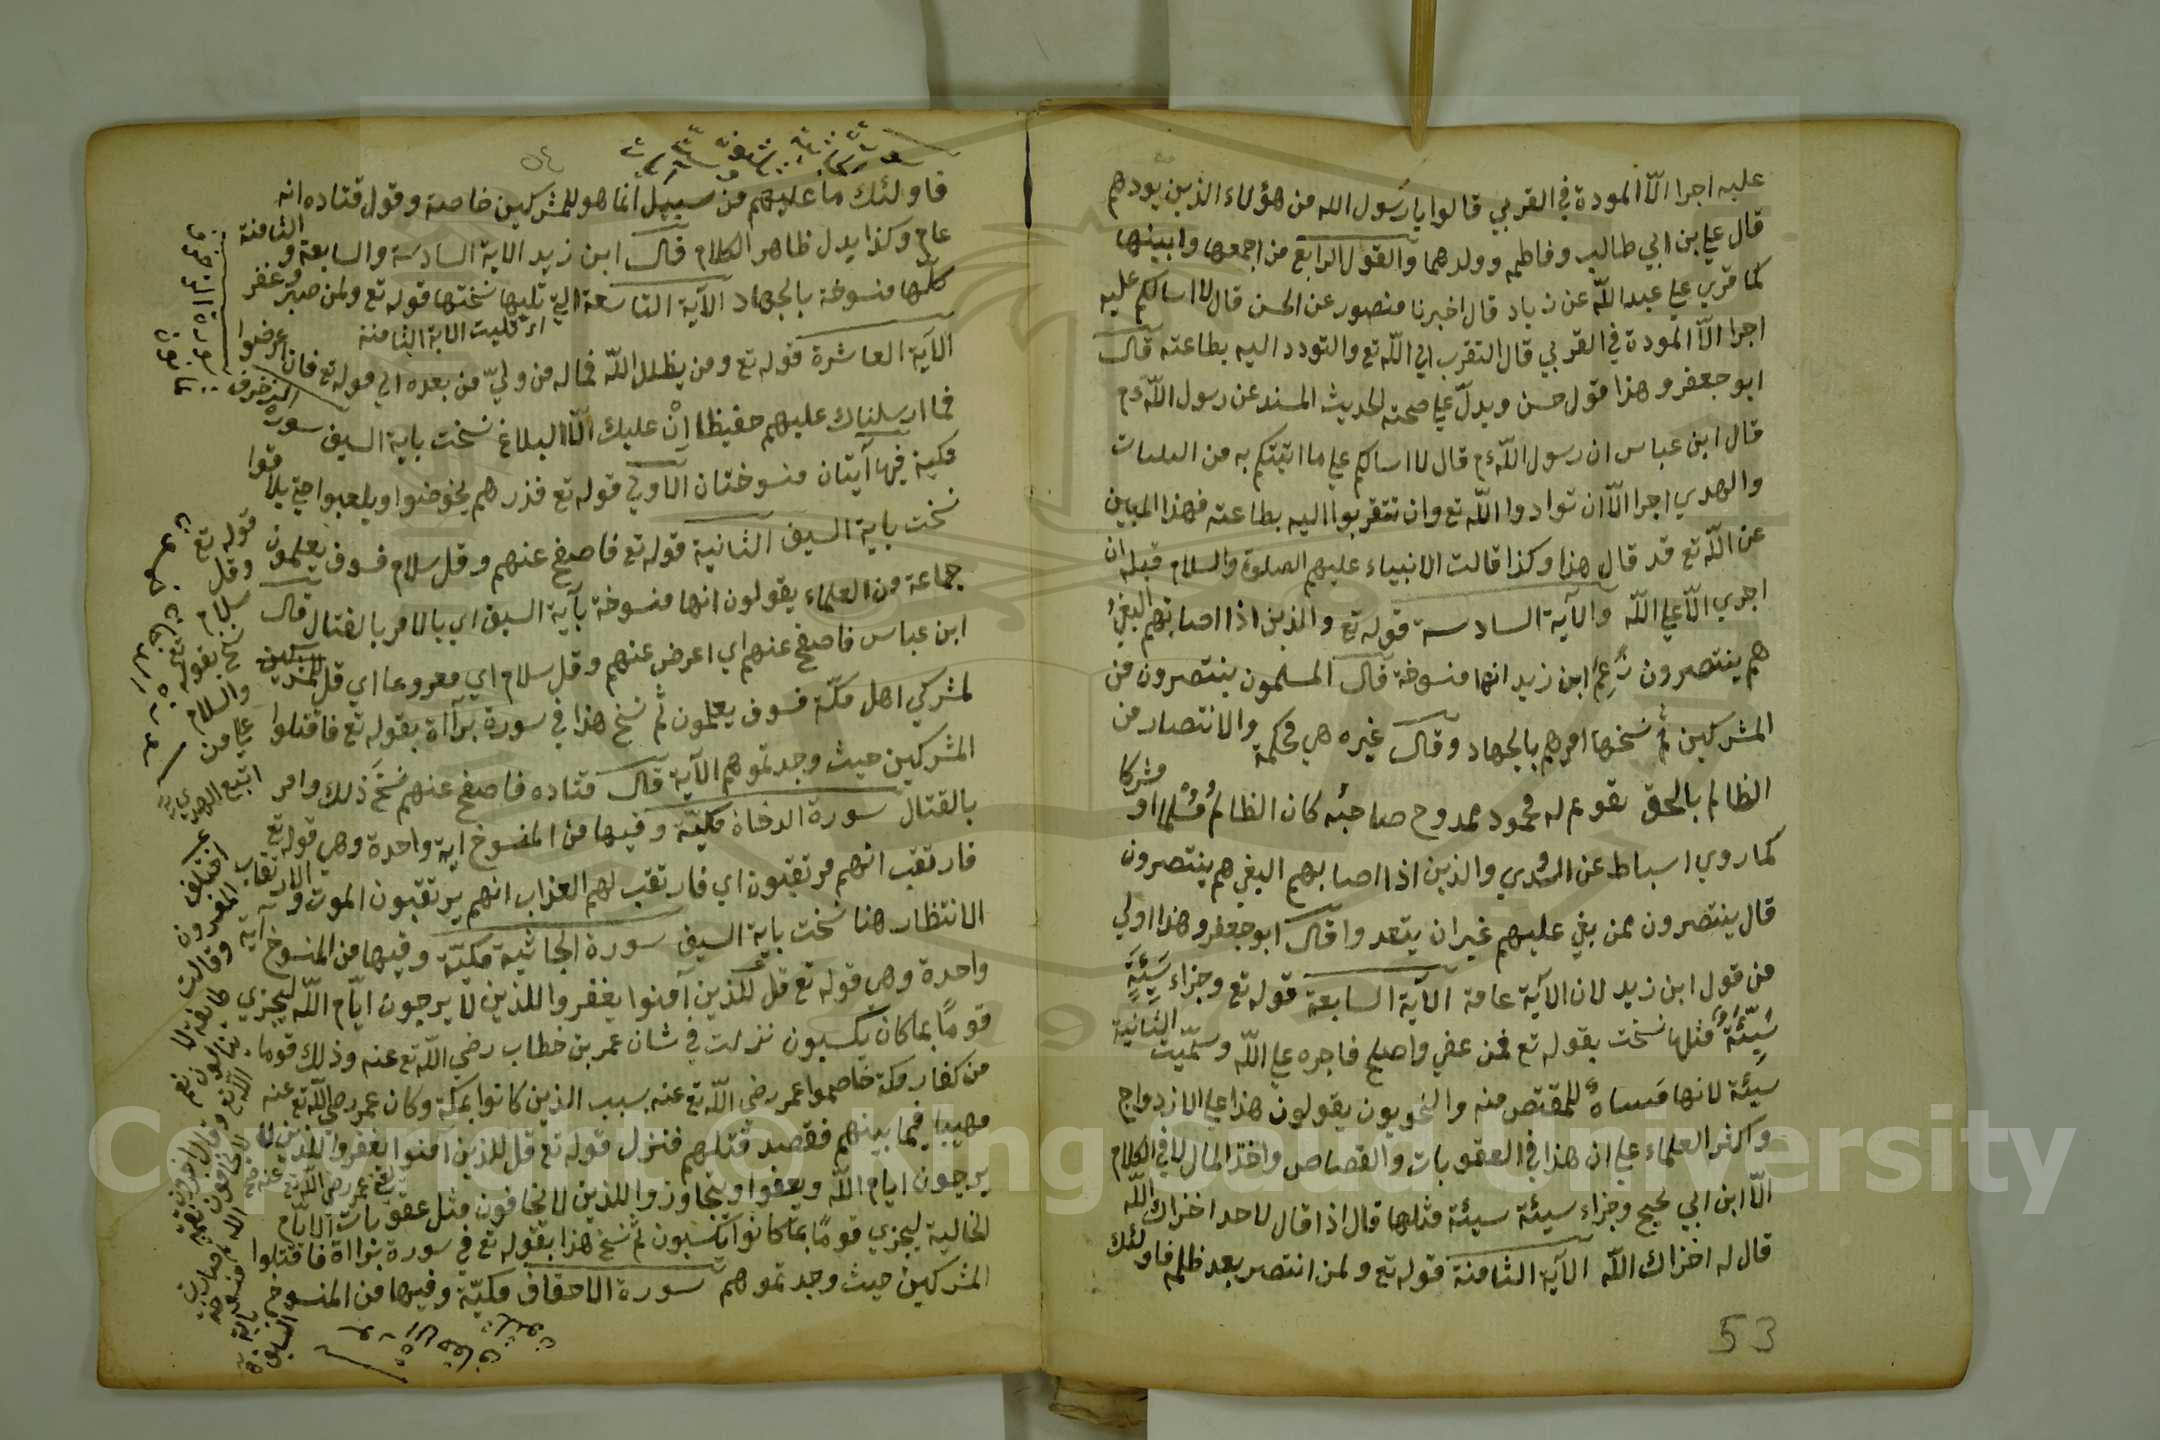 عليه اجرا الّا المودة في القربي قالوا يا رسول الله من هؤلاء الذين يودهم
قال علي بن ابي طالب وفاطمه وولدهما والقول الرابع من اجمعها وابينها
كما قري علي عبد اللّه عن زياد قال اخبرنا منصور عن الحسن قال لا اسالكم عليه
اجرا الّا المودة في القربي قال التقرب الي اللّه تع والتودد اليه بطاعته قال
ابو جعفر وهذا قول حسن ويدلّ علي صحته الحديث المسند عن رسول اللّه ءم
قال ابن عباس ان رسول اللّه ءم قال لا اسالكم علي ما اتيتكم به من البينات
والهدي اجرا الّا ان توادوا اللّه تع وان تتقربوا اليه بطاعته فهذا المبين
عن اللّه تع قد قال هذا وكذا قالت الانبياء عليهم الصلوة والسلام قبله ان
اجري الّا علي اللّه والآية السادسة قوله تع والذين اذا اصابتهم البغيُ
هم ينتصرون زَعِمَ ابن زيد انها منسوخة قال المسلمون ينتصرون من
المشركين ثم نسخها امرهم بالجهاد وقال غيره هي محكمة والانتصار من
الظالم بالحق تقويم له محمود ممدوح صاحبُه كان الظالمُ مُسْلما او مشركا
كما روي اسباط عن السدي والذين اذا اصابهم البغي هم ينتصرون
قال ينتصرون ممن بغي عليهم غير ان يتعدوا قال ابو جعفر وهذا اولي
من قول ابن زيد لان الآية عامة الآية السابعة قوله تع وجزاء سَيّئَةٍ
سَيِّئَةٌ مثلها نسخت بقوله تع فمن عفي واصلح فاجره علي اللّه وسمّيت الثانية
سيئة لانها مَساءةٌ للمقتص منه والنحويون يقولون هذا علي الازدواج
واكثر العلماء علي ان هذا في العقوبات والقصاص واخذ المال لا في الكلام
الّا ابن ابي نجيح وجزاء سيئة سيئة مثلها قال اذا قال لاحد اخزاك اللّه
قال له اخزاك اللّه الآية الثامنة قوله تع ولمن انتصر بعد ظلمه فاولئك
53
٥٤
فاولئك ما عليهم من سبيل انما هو للمشركين خاصة وقول قتاده انه
عام وكذا يدل ظاهر الكلام قال ابن زيد الاية السادسة والسابعة والثامنة
كلّها منسوخة بالجهاد الآية التاسعة التي تليها نسختها قوله تع ولمن صبر وغفر
اي تليت الاية الثامنة
الآية العاشرة قوله تع ومن يظلل اللّه فما له من وليّ من بعده الي قوله تع فان اعرضوا
فما ارسلناك عليهم حفيظا اِنْ عليك الّا البلاغ نسخت باية السيف سورة الزخرف
مكية فيها آيتان منسوختان الاولي قوله تع فذرهم يخوضوا ويلعبوا حتي يلاقوا
نسخت باية السيف الثانية قوله تع فاصفح عنهم وقل سلام فسوف يعلمون
جماعة من العلماء يقولون انها منسوخة بآية السيف اي بالامر بالقتال قال
ابن عباس فاصفح عنهم اي اعرض عنهم وقل سلام اي معروفا اي قل للمشركين
لمشركي اهل مكّة فسوف يعلمون ثم نسخ هذا في سورة برآاة بقوله تع فاقتلوا
المشركين حيث وجدتموهم الآية قال قتاده فاصفح عنهم نسخ ذلك وامر
بالقتال سورة الدخان مكيّة وفيها من المنسوخ اية واحدة وهي قوله تع
فارتقب انهم مرتقبون اي فارتقب لهم العذاب انهم يرتقبون الموت والارتقاب
الانتظار هنا نسخت باية السيف سورة الجاثية مكيّة وفيها من المنسوخ آية
واحدة وهي قوله تع قل للّذين آمنوا يغفروا للذين لا يرجون ايّام اللّه ليجزي
قومًا بما كان يكسبون نزلت في شان عمر بن خطاب رضي اللّه تع عنه وذلك قوما
من كفار مكة خاصموا عمر رضي اللّه تع عنه بسبب الذين كانوا بمكة وكان عمر رضي اللّه تع عنه
مهيبا فيما بينهم فقصد قتلهم فنزل قوله تع قل للذين آمنوا يغفروا للذين لا
يرجون ايام اللّه ويعفوا ويتجاوزوا للذين لا يخافون مثل عقوبات الايّام
الخالية ليجزي قومًا بما كانوا يكسبون ثم نسخ هذا بقوله تع في سورة براءة فاقتلوا
المشركين حيث وجدتموهم سورة الاحقاف مكيّة وفيها من المنسوخ
Copyright © King Saud University